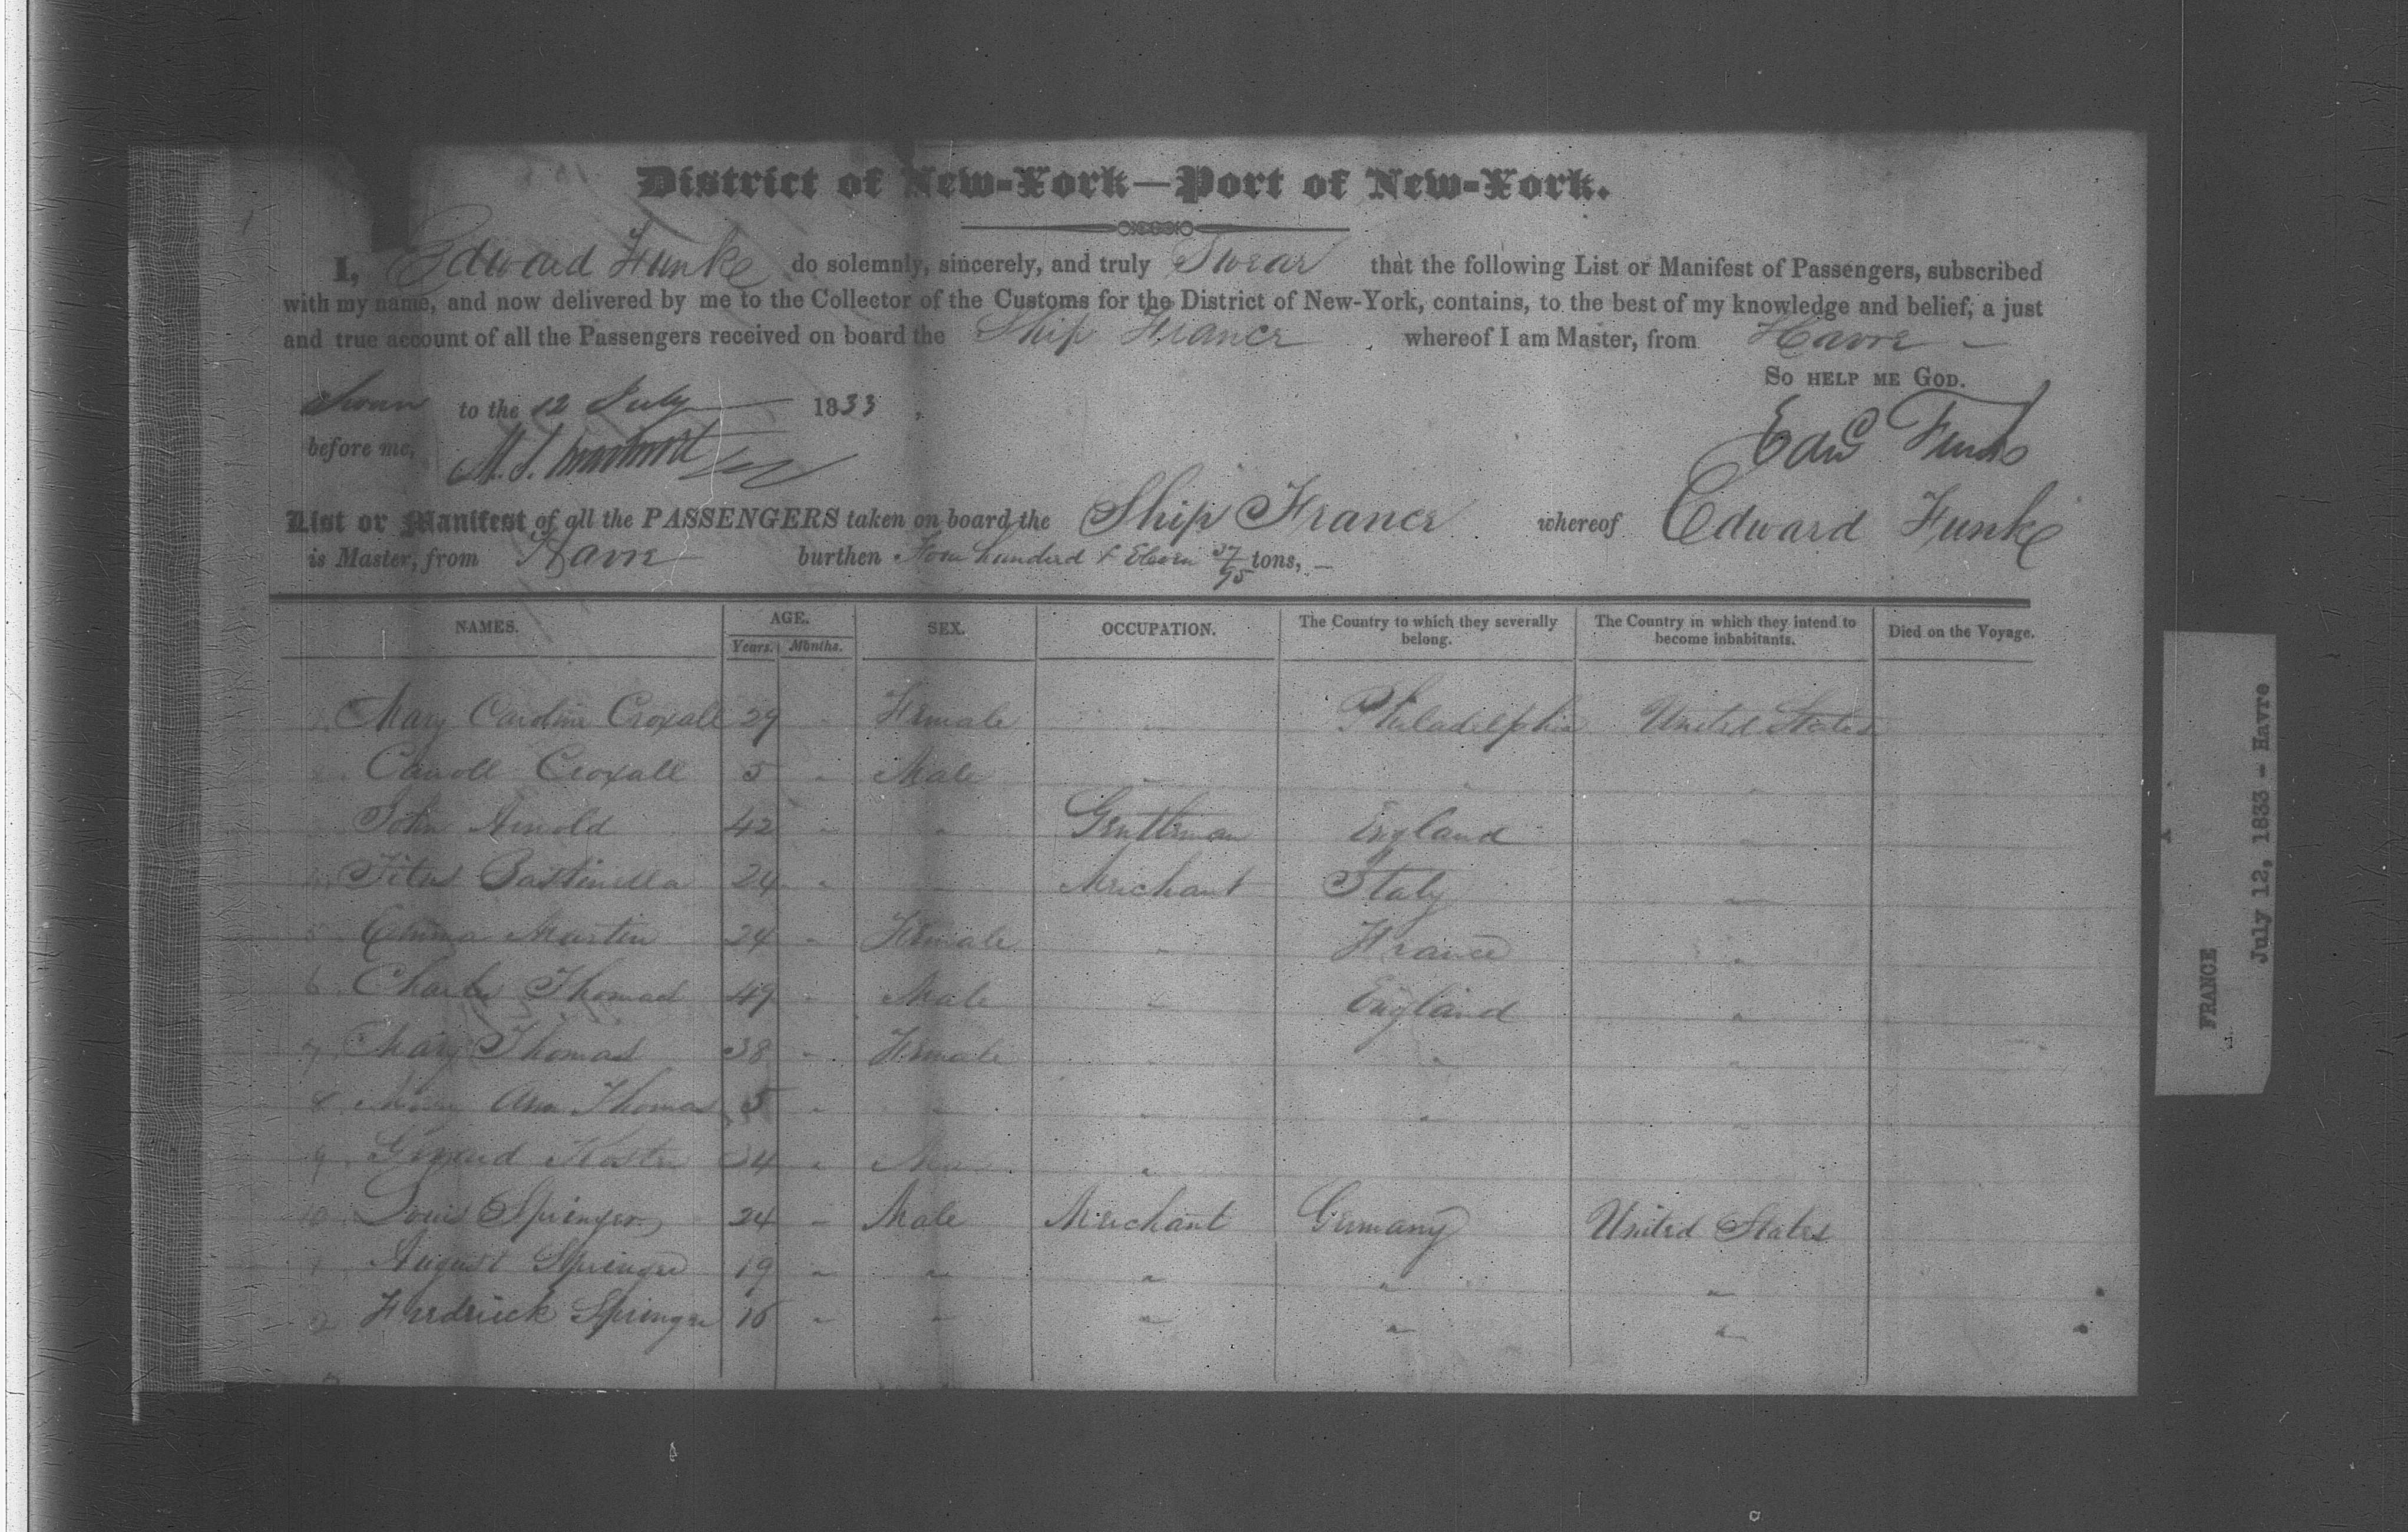 District of New-York—Port of New-York.
I, Edward Funk do solemnly, sincerely, and truly Swear that the following List or Manifest of Passengers, subscribed
with my name, and now delivered by me to the Collector of the Customs for the District of New-York, contains, to the best of my knowledge and belief, a just
and true account of all the Passengers received on board the Ship France whereof I am Master, from Havre —
So help me God.
Sworn to the 12 July 1833
before me,
Edwd Funk
List or Manifest of all the PASSENGERS taken on board the Ship France whereof Edward Funk
is Master, from Havre burthen Four hundred & Eleven 37/95 tons, —
NAMES. AGE. SEX. OCCUPATION. The Country to which they severally belong. The Country in which they intend to become inhabitants. Died on the Voyage.
Years. Months.
1 Mary Caroline Croxall 29 " Female " Philadelphia United States
Carroll Croxall 5 " Male " " "
John Arnold 42 " " Gentleman England "
Titus 24 " " Merchant Italy "
5 Emma Martin 24 " Female " France "
6 Charles Thomas 49 " Male " England "
7 Mary Thomas 38 " Female " " "
8 Mary Ann Thomas 5 " " " " "
9 34 " "
10 Louis Springer 24 " Male Merchant Germany United States
1 August Springer 19 " " " " "
2 Frederick Springer 16 " " " " "
FRANCE
July 12, 1833 - Havre